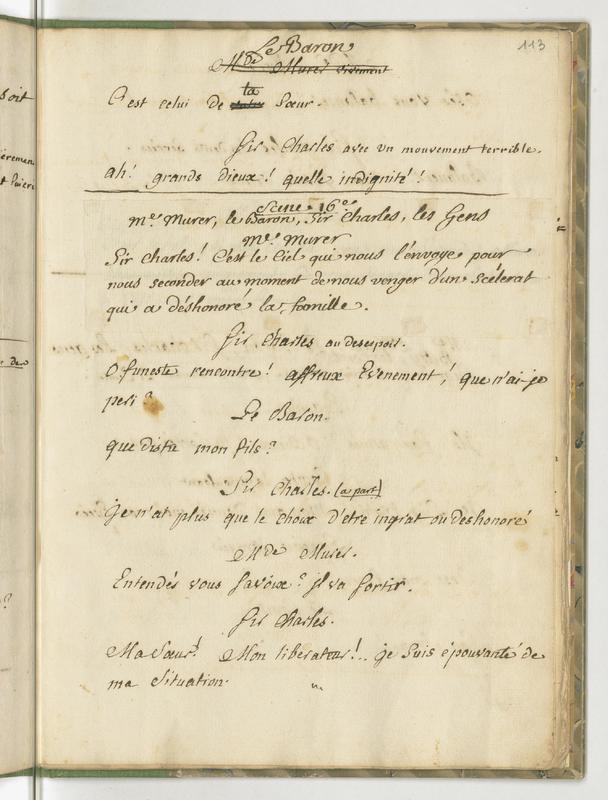 113
Le Baron
Mde Murer vivement
C'est celui de ta Sœur.
Sir Charles avec un mouvement terrible.
ah! grands dieux! quelle indignité!
Scene. 16e.
Me. Murer, le Baron, Sir Charles, les Gens
Me. Murer
Sir Charles! C'est le Ciel qui nous l'envoye pour
nous seconder au moment de nous venger d'un scélerat
qui a déshonoré la famille.
Sir Charles au desespoir.
O funeste rencontre! affreux Evenement! que n'ai-je
peri?
Le Baron.
que distu mon fils?
Sir Charles. (a part)
je n'ai plus que le choix d'etre ingrat ou deshonoré
Mde Murer.
Entendés vous sa voix? il va sortir.
Sir Charles.
Ma Sœur! Mon liberateur!.. je suis épouvanté de
ma Situation.
soit
de
?